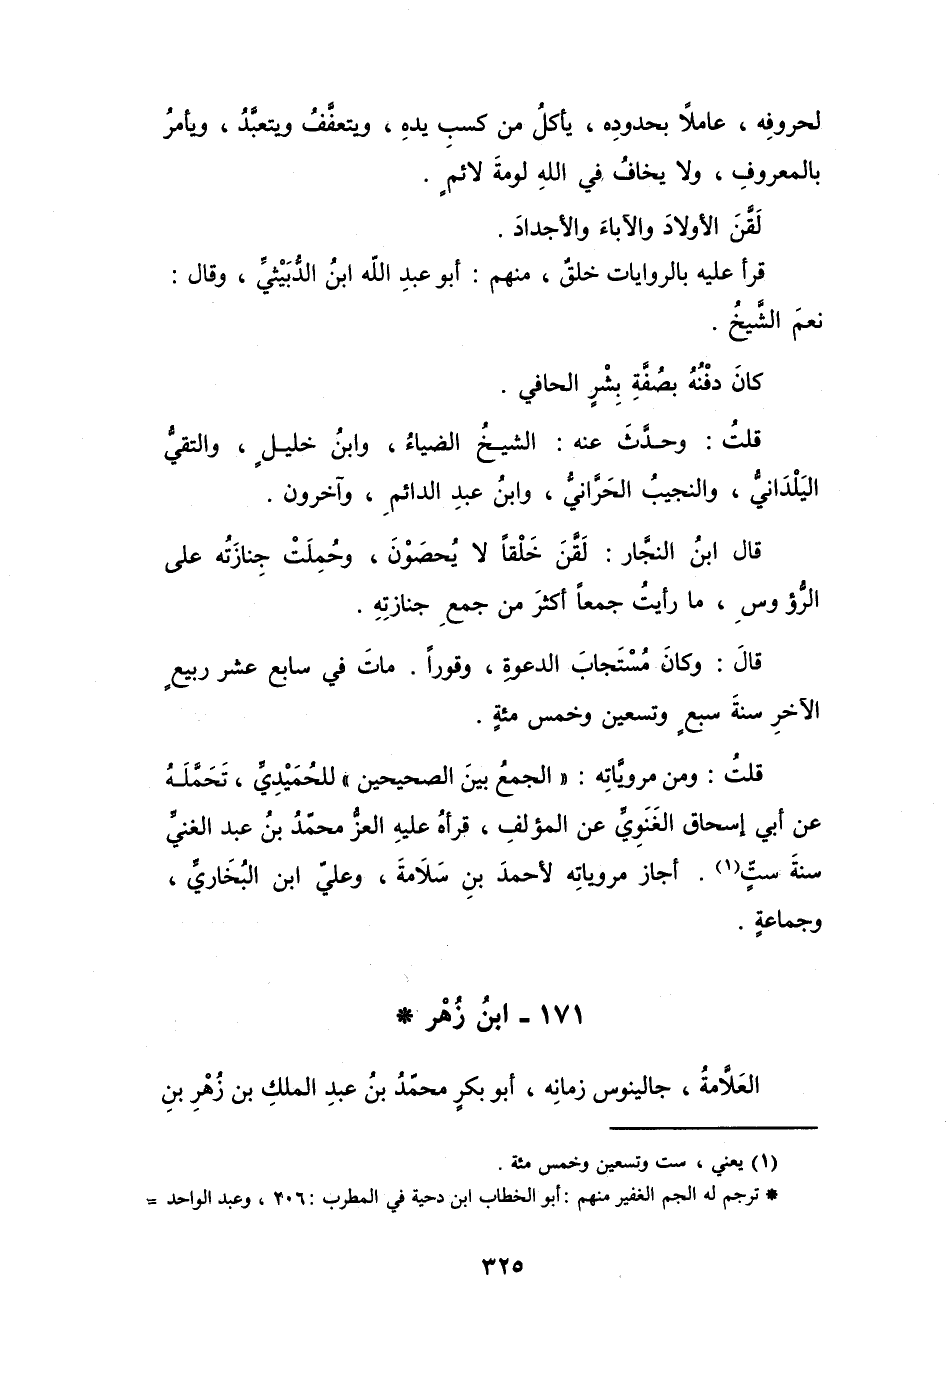 لحروفِه ، عاملًا بحدودِه ، يأكلُ من كسبِ يدهِ ، ويتعفَّفُ ويتعبَّدُ ، ويأمرُ
بالمعروفِ ، ولا يخافُ في اللهِ لومةَ لائمٍ .
لَقَّنَ الأولادَ والآباءَ والأجدادَ .
قرأ عليه بالروايات خلقٌ ، منهم : أبو عبدِ اللّه ابنُ الدُّبَيْثيِّ ، وقال :
نعمَ الشَّيخُ .
كانَ دفْنُهُ بصُفَّةِ بِشْرٍ الحافي .
قلتُ : وحـدَّثَ عنه : الشيـخُ الضياءُ ، وابنُ خليـلٍ ، والتقيُّ
اليَلْدَانيُّ ، والنجيبُ الحَرَّانيُّ ، وابنُ عبدِ الدائمِ ، وآخرون .
قال ابنُ النجَّار : لَقَّنَ خَلْقاً لا يُحصَوْنَ ، وحُمِلَتْ جِنازَتُه على
الرُّؤوسِ ، ما رأيتُ جمعاً أكثرَ من جمعِ جنازتِهِ .
قالَ : وكانَ مُسْتَجابَ الدعوةِ ، وقوراً . ماتَ في سابع عشر ربيعٍ
الآخرِ سنةَ سبعٍ وتسعين وخمس مئةٍ .
قلتُ : ومن مرويَّاتِه : « الجمعُ بينَ الصحيحين » للحُمَيْدِيِّ ، تَحَمَّلَـهُ
عن أبي إسحاق الغَنَوِيِّ عن المؤلفِ ، قرأهُ عليهِ العزُّ محمّدُ بنُ عبد الغنيِّ
سنةَ ستٍّ(١) . أجاز مروياتِه لأحمدَ بنِ سَلَامةَ ، وعليّ ابن البُخَاريِّ ،
وجماعةٍ .
١٧١ - ابنُ زُهْر *
العَلَّامةُ ، جالينوس زمانِه ، أبو بكرٍ محمّدُ بنُ عبدِ الملكِ بن زُهْرِ بنِ
(١) يعني ، ست وتسعين وخمس مئة .
* ترجم له الجم الغفير منهم : أبو الخطاب ابن دحية في المطرب : ٢٠٦ ، وعبد الواحد =
٣٢٥